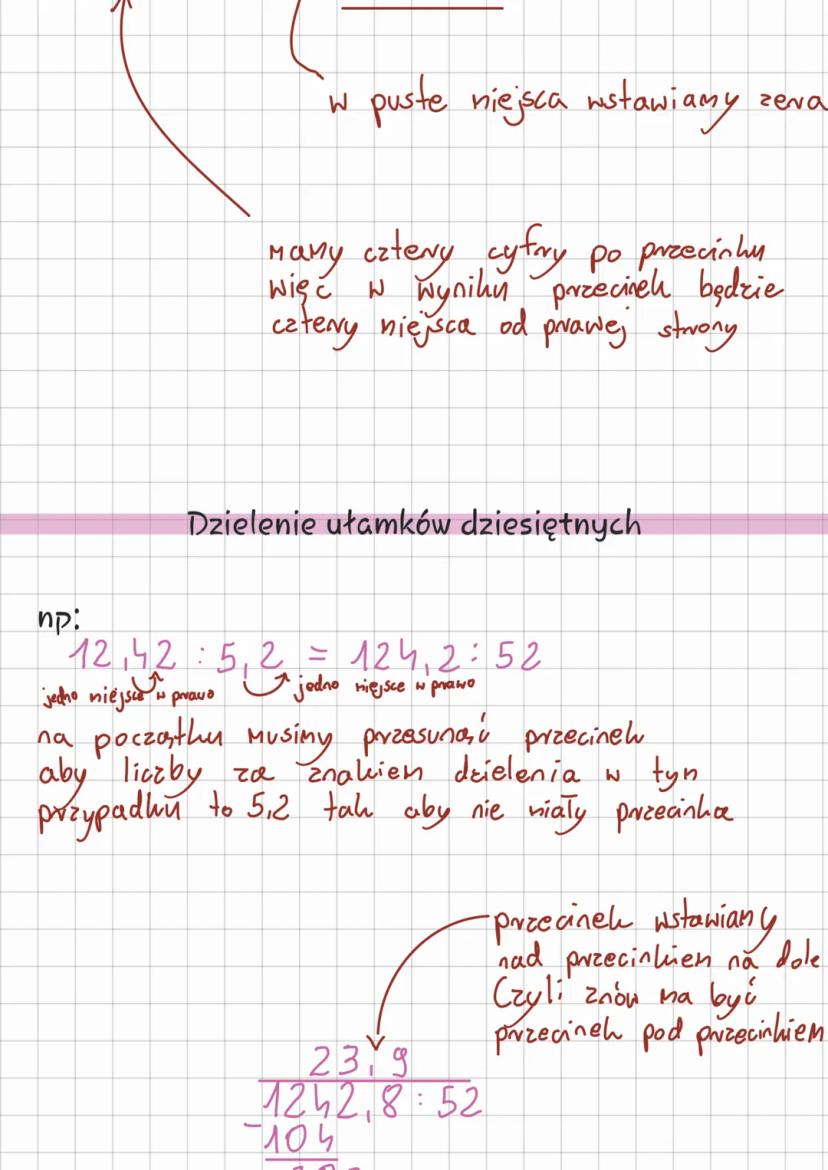 w puste miejsca wstawiamy zera
mamy cztery cyfry po przecinku
więc w wyniku przecinek będzie
cztery miejsca od prawej strony
Dzielenie ułamków dziesiętnych
np:
12,42 : 5,2 = 124,2 : 52
jedno miejsce w prawo jedno miejsce w prawo
na początku musimy przesunąć przecinek
aby liczby za znakiem dzielenia w tym
przypadku to 5,2 tak aby nie miały przecinka
przecinek wstawiamy
nad przecinkiem na dole
Czyli znów ma być
przecinek pod przecinkiem
23,9
1242,8 : 52
-104